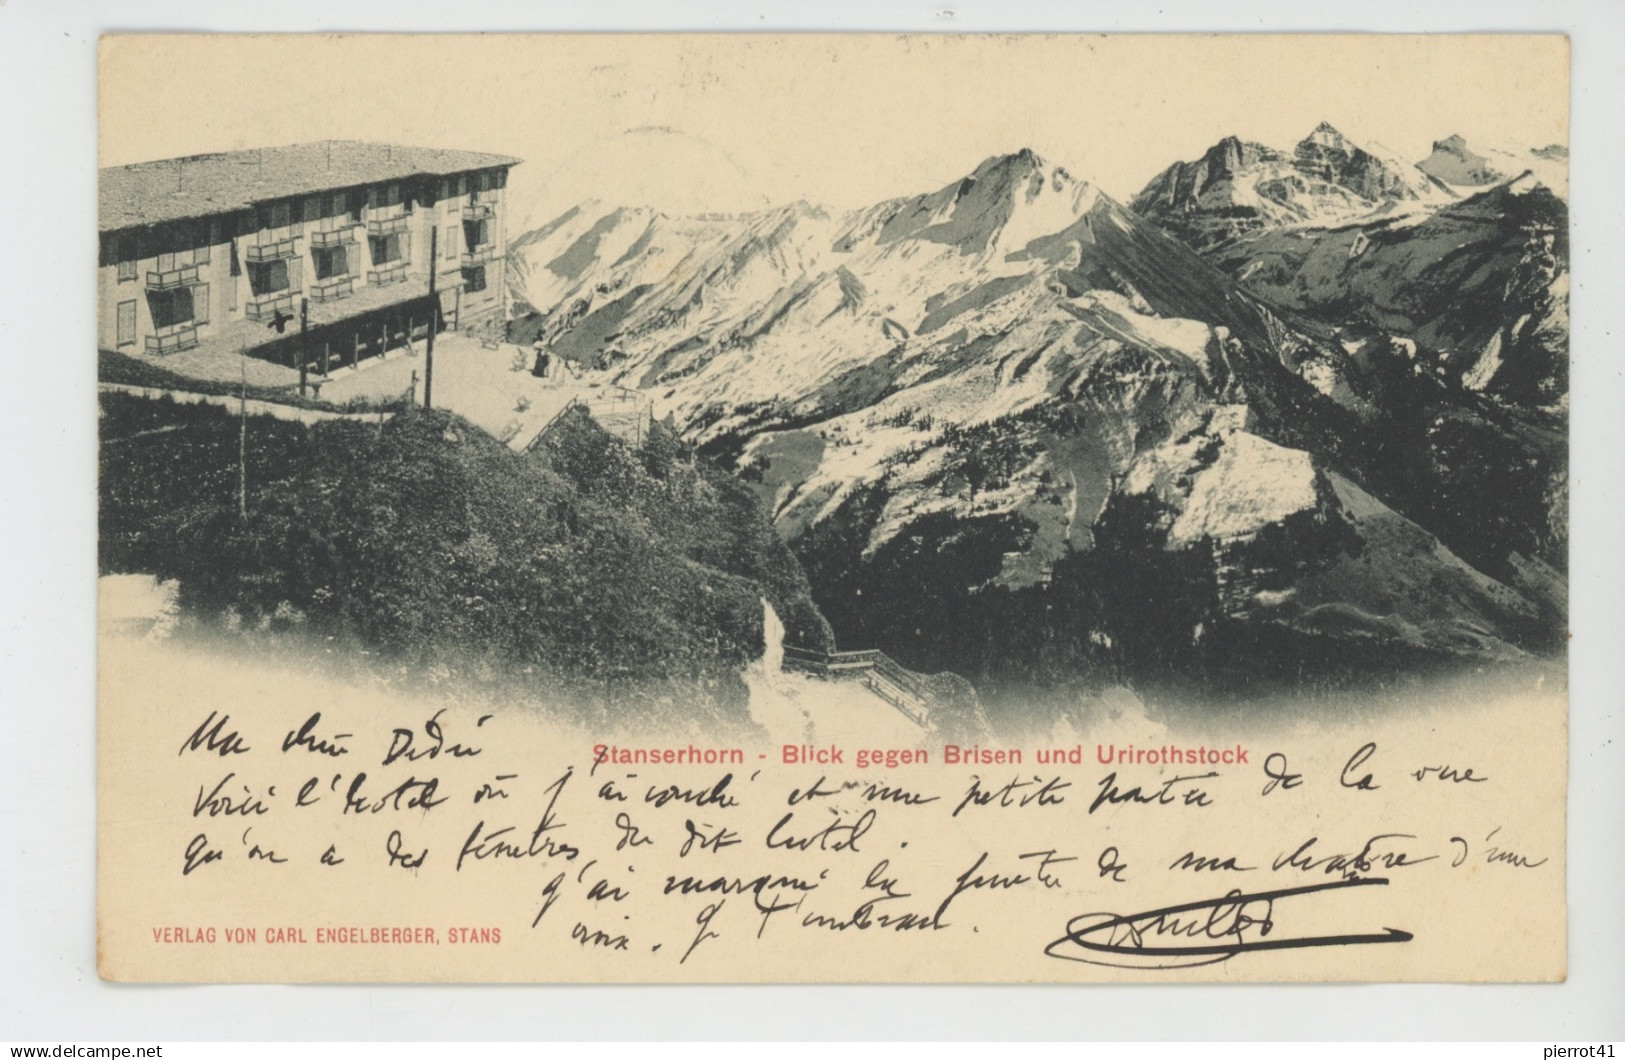 Stanserhorn - Blick gegen Brisen und Urirothstock
Ma chère Dédée
Voici l'hotel où j'ai couché et une petite partie de la vue
qu'on a des fenêtres du dit hotel.
J'ai marqué la fenêtre de ma chambre d'une
croix. Je t'embrasse.
VERLAG VON CARL ENGELBERGER, STANS
pierrot41
delcampe.net